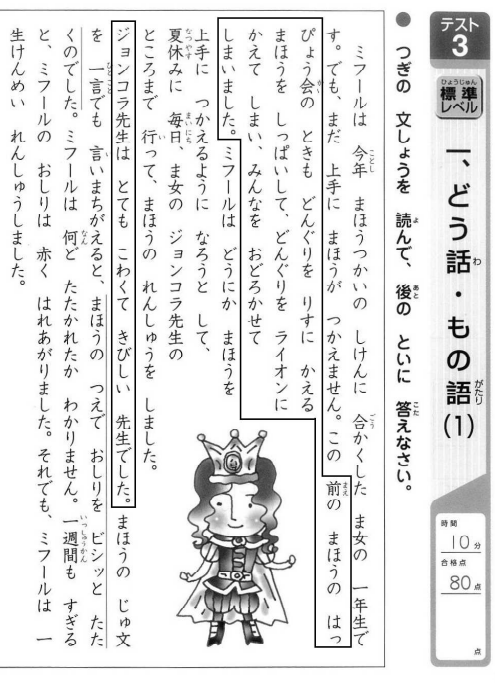 テスト
3
ひょうじゅん
標準
レベル
わ がたり
一、どう話・もの語(1)
時間
10分
合格点
80点
点
よ あと こた
● つぎの 文しょうを 読んで、後の といに 答えなさい。
ことし ごう
ミフールは 今年 まほうつかいの しけんに 合かくした ま女の 一年生で
まえ
す。でも、まだ 上手に まほうが つかえません。この 前の まほうの はっ
かい
ぴょう会の ときも どんぐりを りすに かえる
まほうを しっぱいして、どんぐりを ライオンに
かえて しまい、みんなを おどろかせて
しまいました。ミフールは どうにか まほうを
上手に つかえるように なろうと して、
なつやす まいにち
夏休みに 毎日、ま女の ジョンコラ先生の
ところまで 行って、まほうの れんしゅうを しました。
ジョンコラ先生は とても こわくて きびしい 先生でした。まほうの じゅ文
ひとこと
を 一言でも 言いまちがえると、まほうの つえで おしりを ビシッと たた
なん いっしゅうかん
くのでした。ミフールは 何ど たたかれたか わかりません。一週間も すぎる
と、ミフールの おしりは 赤く はれあがりました。それでも、ミフールは 一
生けんめい れんしゅうしました。